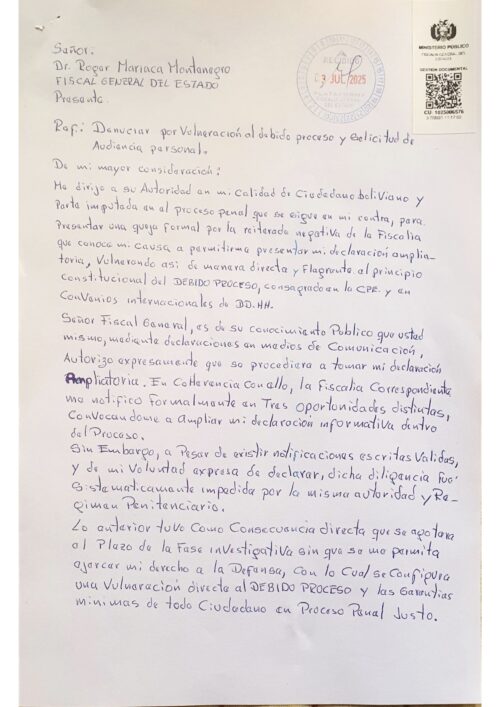 MINISTERIO PÚBLICO
FISCALÍA GENERAL DEL ESTADO
GESTION DOCUMENTAL
RECIBIDO
3 JUL 2025
Señor.
Dr. Roger Mariaca Montenegro
FISCAL GENERAL DEL ESTADO
Presente.
Ref: Denunciar por Vulneración al debido proceso y Solicitud de
Audiencia personal.
De mi mayor consideración:
Me dirijo a su Autoridad en mi Calidad de Ciudadano boliviano y
Parte imputada en el proceso penal que se sigue en mi contra, para
Presentar una queja formal por la reiterada negativa de la Fiscalia
que conoce mi causa a permitirme presentar mi declaración amplia-
toria, Vulnerando así de manera directa y Flagrante al principio
constitucional del DEBIDO PROCESO, consagrado en la CPE. y en
Convenios internacionales de DD.HH.
Señor Fiscal General, es de su conocimiento Publico que usted
mismo, mediante declaraciones en medios de Comunicación,
Autorizo expresamente que se procediera a tomar mi declaración
Ampliatoria. En Coherencia Con ello, la Fiscalia Correspondiente
me notifico Formalmente en Tres oportunidades distintas,
Convocandome a Ampliar mi declaración informativa dentro
del Proceso.
Sin Embargo, a Pesar de existir notificaciones escritas Validas,
y de mi Voluntad expresa de declarar, dicha diligencia fue
Sistematicamente impedida por la misma autoridad y Re-
gimen Penitenciario.
Lo anterior tuvo Como Consecuencia directa que se agotara
el Plazo de la Fase investigativa sin que se me permita
ejercer mi derecho a la Defensa, Con lo Cual se Configura
una Vulneración directa al DEBIDO PROCESO y las Garantias
minimas de todo Ciudadano en Proceso Penal Justo.